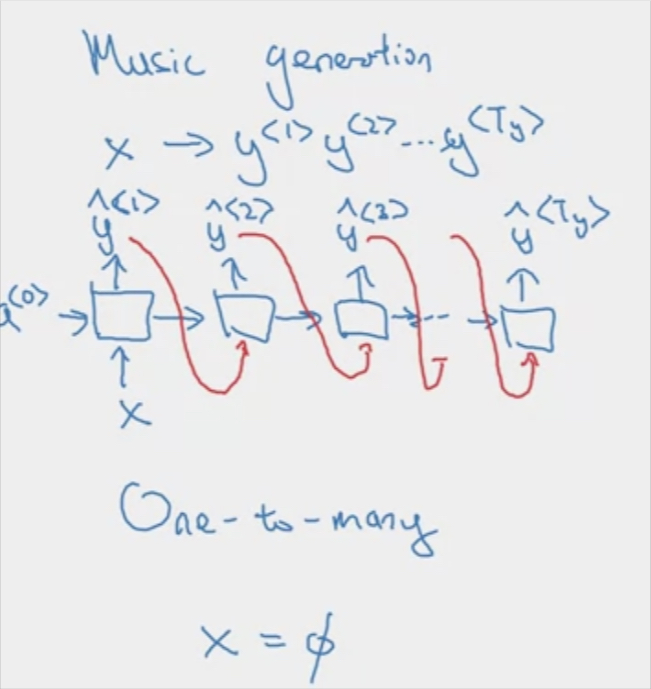 Music generation
x → y^<1> y^<2> ... y^<Ty>
ŷ^<1> ŷ^<2> ŷ^<3> ŷ^<Ty>
a^<0>
x
One-to-many
x = ϕ